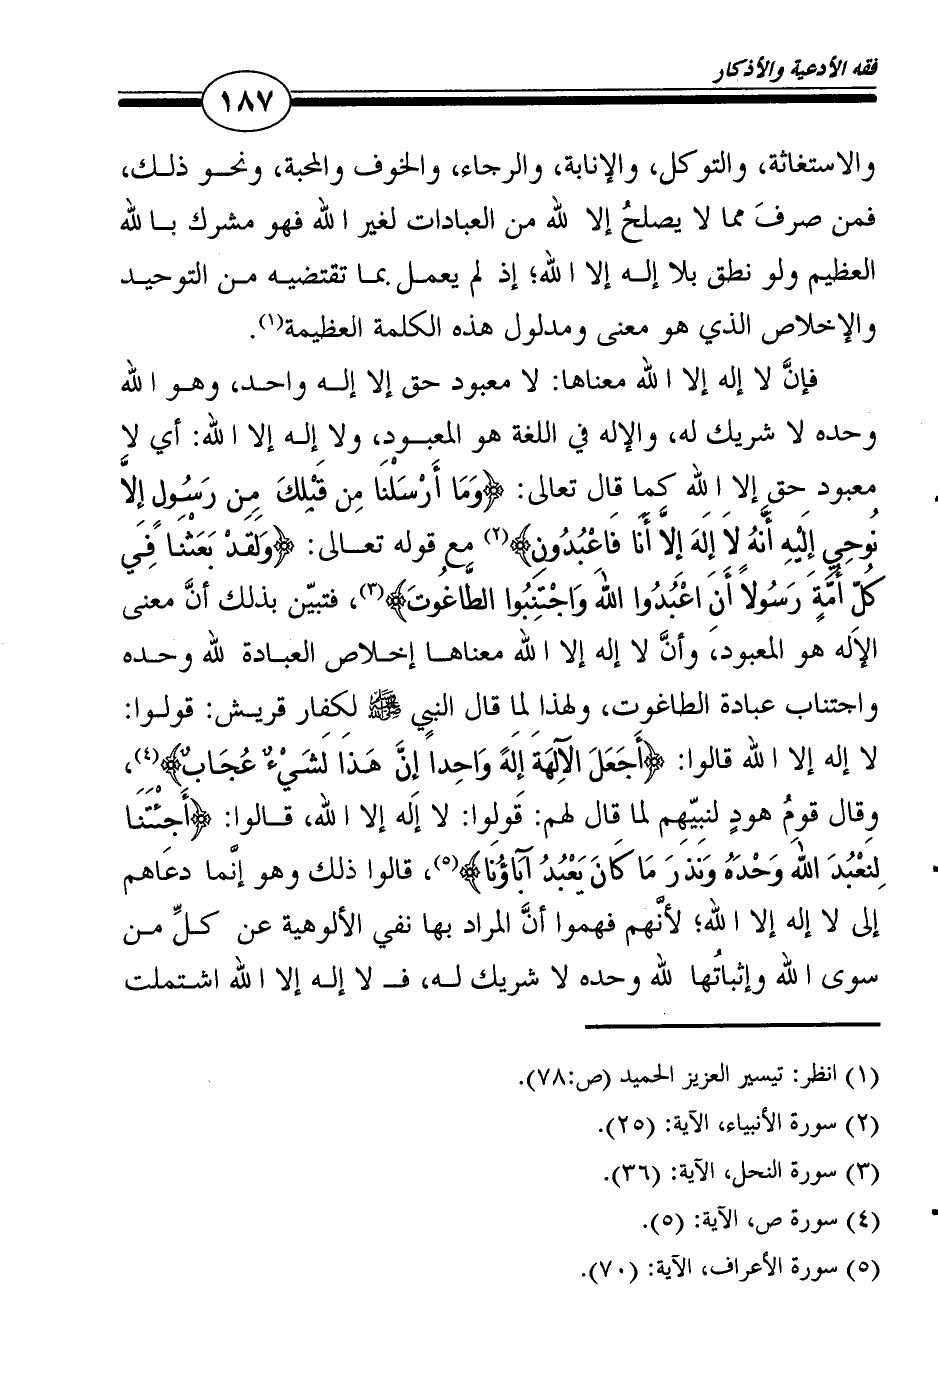 فقه الأدعية والأذكار
١٨٧
والاستغاثة، والتوكل، والإنابة، والرجاء، والخوف والمحبة، ونحو ذلك،
فمن صرفَ مما لا يصلحُ إلا لله من العبادات لغير الله فهو مشرك بالله
العظيم ولو نطق بلا إله إلا الله؛ إذ لم يعمل بما تقتضيه من التوحيد
والإخلاص الذي هو معنى ومدلول هذه الكلمة العظيمة(١).
فإنَّ لا إله إلا الله معناها: لا معبود حق إلا إله واحد، وهو الله
وحده لا شريك له، والإله في اللغة هو المعبود، ولا إله إلا الله: أي لا
معبود حق إلا الله كما قال تعالى: ﴿وَمَا أَرْسَلْنَا مِن قَبْلِكَ مِن رَسُولٍ إِلاَّ
نُوحِي إِلَيْهِ أَنَّهُ لاَ إِلَهَ إِلاَّ أَنَا فَاعْبُدُونِ﴾(٢) مع قوله تعالى: ﴿وَلَقَدْ بَعَثْنَا فِي
كُلِّ أُمَّةٍ رَسُولاً أَنِ اعْبُدُوا اللهَ وَاجْتَنِبُوا الطَّاغُوتَ﴾(٣)، فتبيّن بذلك أنَّ معنى
الإله هو المعبود، وأنَّ لا إله إلا الله معناها إخلاص العبادة لله وحده
واجتناب عبادة الطاغوت، ولهذا لما قال النبي ﷺ لكفار قريش: قولوا:
لا إله إلا الله قالوا: ﴿أَجَعَلَ الآلِهَةَ إِلَهًا وَاحِداً إِنَّ هَذَا لَشَيْءٌ عُجَابٌ﴾(٤)،
وقال قومُ هودٍ لنبيّهم لما قال لهم: قولوا: لا إله إلا الله، قالوا: ﴿أَجِئْتَنَا
لِنَعْبُدَ اللهَ وَحْدَهُ وَنَذَرَ مَا كَانَ يَعْبُدُ آبَاؤُنَا﴾(٥)، قالوا ذلك وهو إنَّما دعاهم
إلى لا إله إلا الله؛ لأنَّهم فهموا أنَّ المراد بها نفي الألوهية عن كلِّ من
سوى الله وإثباتُها لله وحده لا شريك له، فـ لا إله إلا الله اشتملت
(١) انظر: تيسير العزيز الحميد (ص:٧٨).
(٢) سورة الأنبياء، الآية: (٢٥).
(٣) سورة النحل، الآية: (٣٦).
(٤) سورة ص، الآية: (٥).
(٥) سورة الأعراف، الآية: (٧٠).